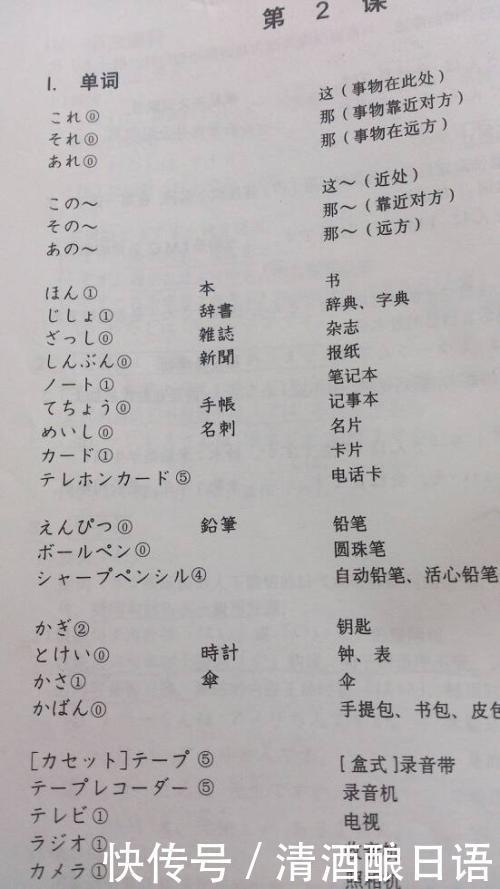 第 2 课
I. 单词
これ⓪ 这（事物在此处）
それ⓪ 那（事物靠近对方）
あれ⓪ 那（事物在远方）
この～ 这～（近处）
その～ 那～（靠近对方）
あの～ 那～（远方）
ほん① 本 书
じしょ① 辞書 辞典、字典
ざっし⓪ 雑誌 杂志
しんぶん⓪ 新聞 报纸
ノート① 笔记本
てちょう⓪ 手帳 记事本
めいし⓪ 名刺 名片
カード① 卡片
テレホンカード⑤ 电话卡
えんぴつ⓪ 鉛筆 铅笔
ボールペン⓪ 圆珠笔
シャープペンシル④ 自动铅笔、活心铅笔
かぎ② 钥匙
とけい⓪ 時計 钟、表
かさ① 傘 伞
かばん⓪ 手提包、书包、皮包
[カセット]テープ⑤ [盒式]录音带
テープレコーダー⑤ 录音机
テレビ① 电视
ラジオ①
カメラ①
快传号 / 清酒酿日语